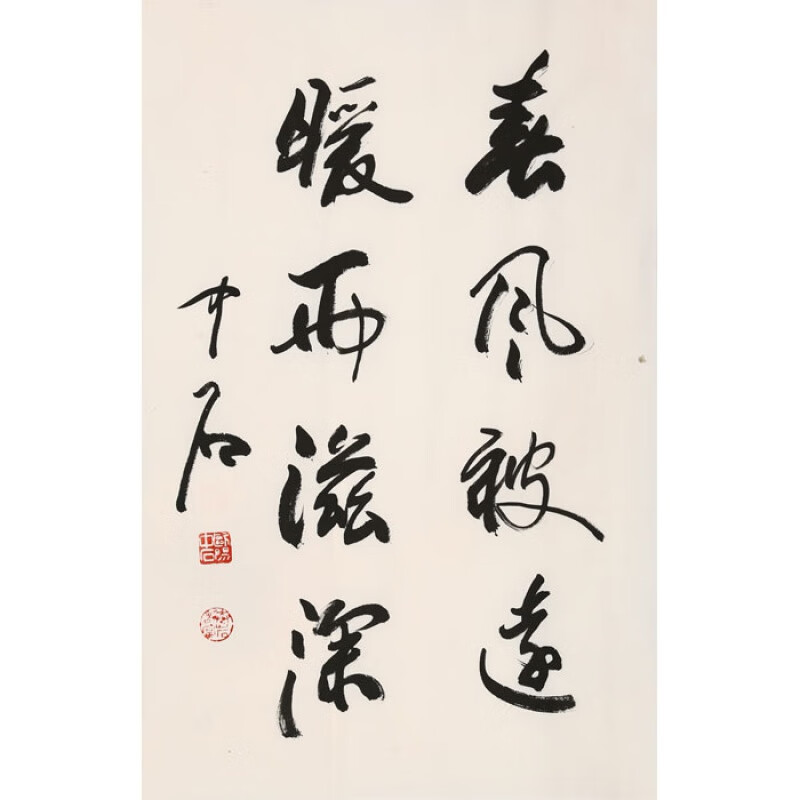 春风被远
暖雨滋深
中石